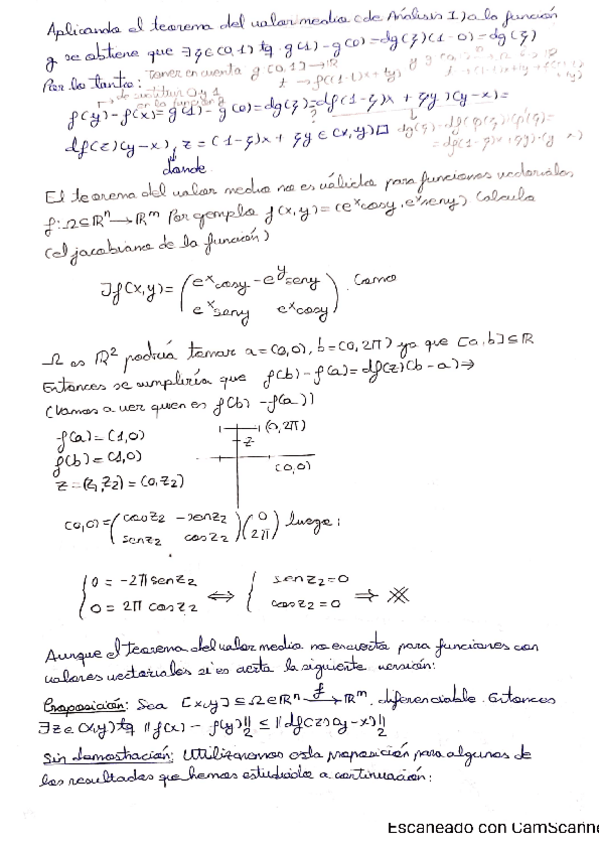 Aplicando el teorema del valor medio (de Análisis I) a la función
g se obtiene que ∃ξ∈(0,1) tq. g(1)-g(0)=dg(ξ)(1-0)=dg(ξ)
Por lo tanto: tener en cuenta g:[0,1]→ℝ
t→f((1-t)x+ty)
de sustituir 0 y 1
en la función g
f(y)-f(x)=g(1)-g(0)=dg(ξ)=df((1-ξ)x+ξy)(y-x)=
?
df(z)(y-x), z=(1-ξ)x+ξy∈(x,y)□
donde
El teorema del valor medio no es válido para funciones vectoriales,
f:Ω⊆ℝⁿ→ℝᵐ Por ejemplo f(x,y)=(eˣcosy, eˣseny) Calculo
(el jacobiano de la función)
Jf(x,y)=(eˣcosy -eʸseny
eˣseny eˣcosy). Como
Ω es ℝ² podría tomar a=(0,0), b=(0,2π) ya que [a,b]⊆ℝ
Entonces se cumpliría que f(b)-f(a)=df(z)(b-a)⇒
(Vamos a ver quien es f(b)-f(a))
f(a)=(1,0)
(0,2π)
f(b)=(1,0)
z
z=(z₁,z₂)=(0,z₂)
(0,0)
(0,0)=(cosz₂ -senz₂
senz₂ cosz₂)(0
2π) luego:
{0=-2πsenz₂
0=2πcosz₂ ⇔ {senz₂=0
cosz₂=0 ⇒ ※
Aunque el teorema del valor medio no es cierto para funciones con
valores vectoriales si es cierta la siguiente versión:
Proposición: Sea [x,y]⊆Ω⊆ℝⁿ→ᶠℝᵐ, diferenciable. Entonces
∃z∈(x,y) tq ||f(x)-f(y)||₂≤||df(z)(y-x)||₂
Sin demostración: Utilizaremos esta proposición para algunos de
los resultados que hemos estudiado a continuación:
Escaneado con CamScanne